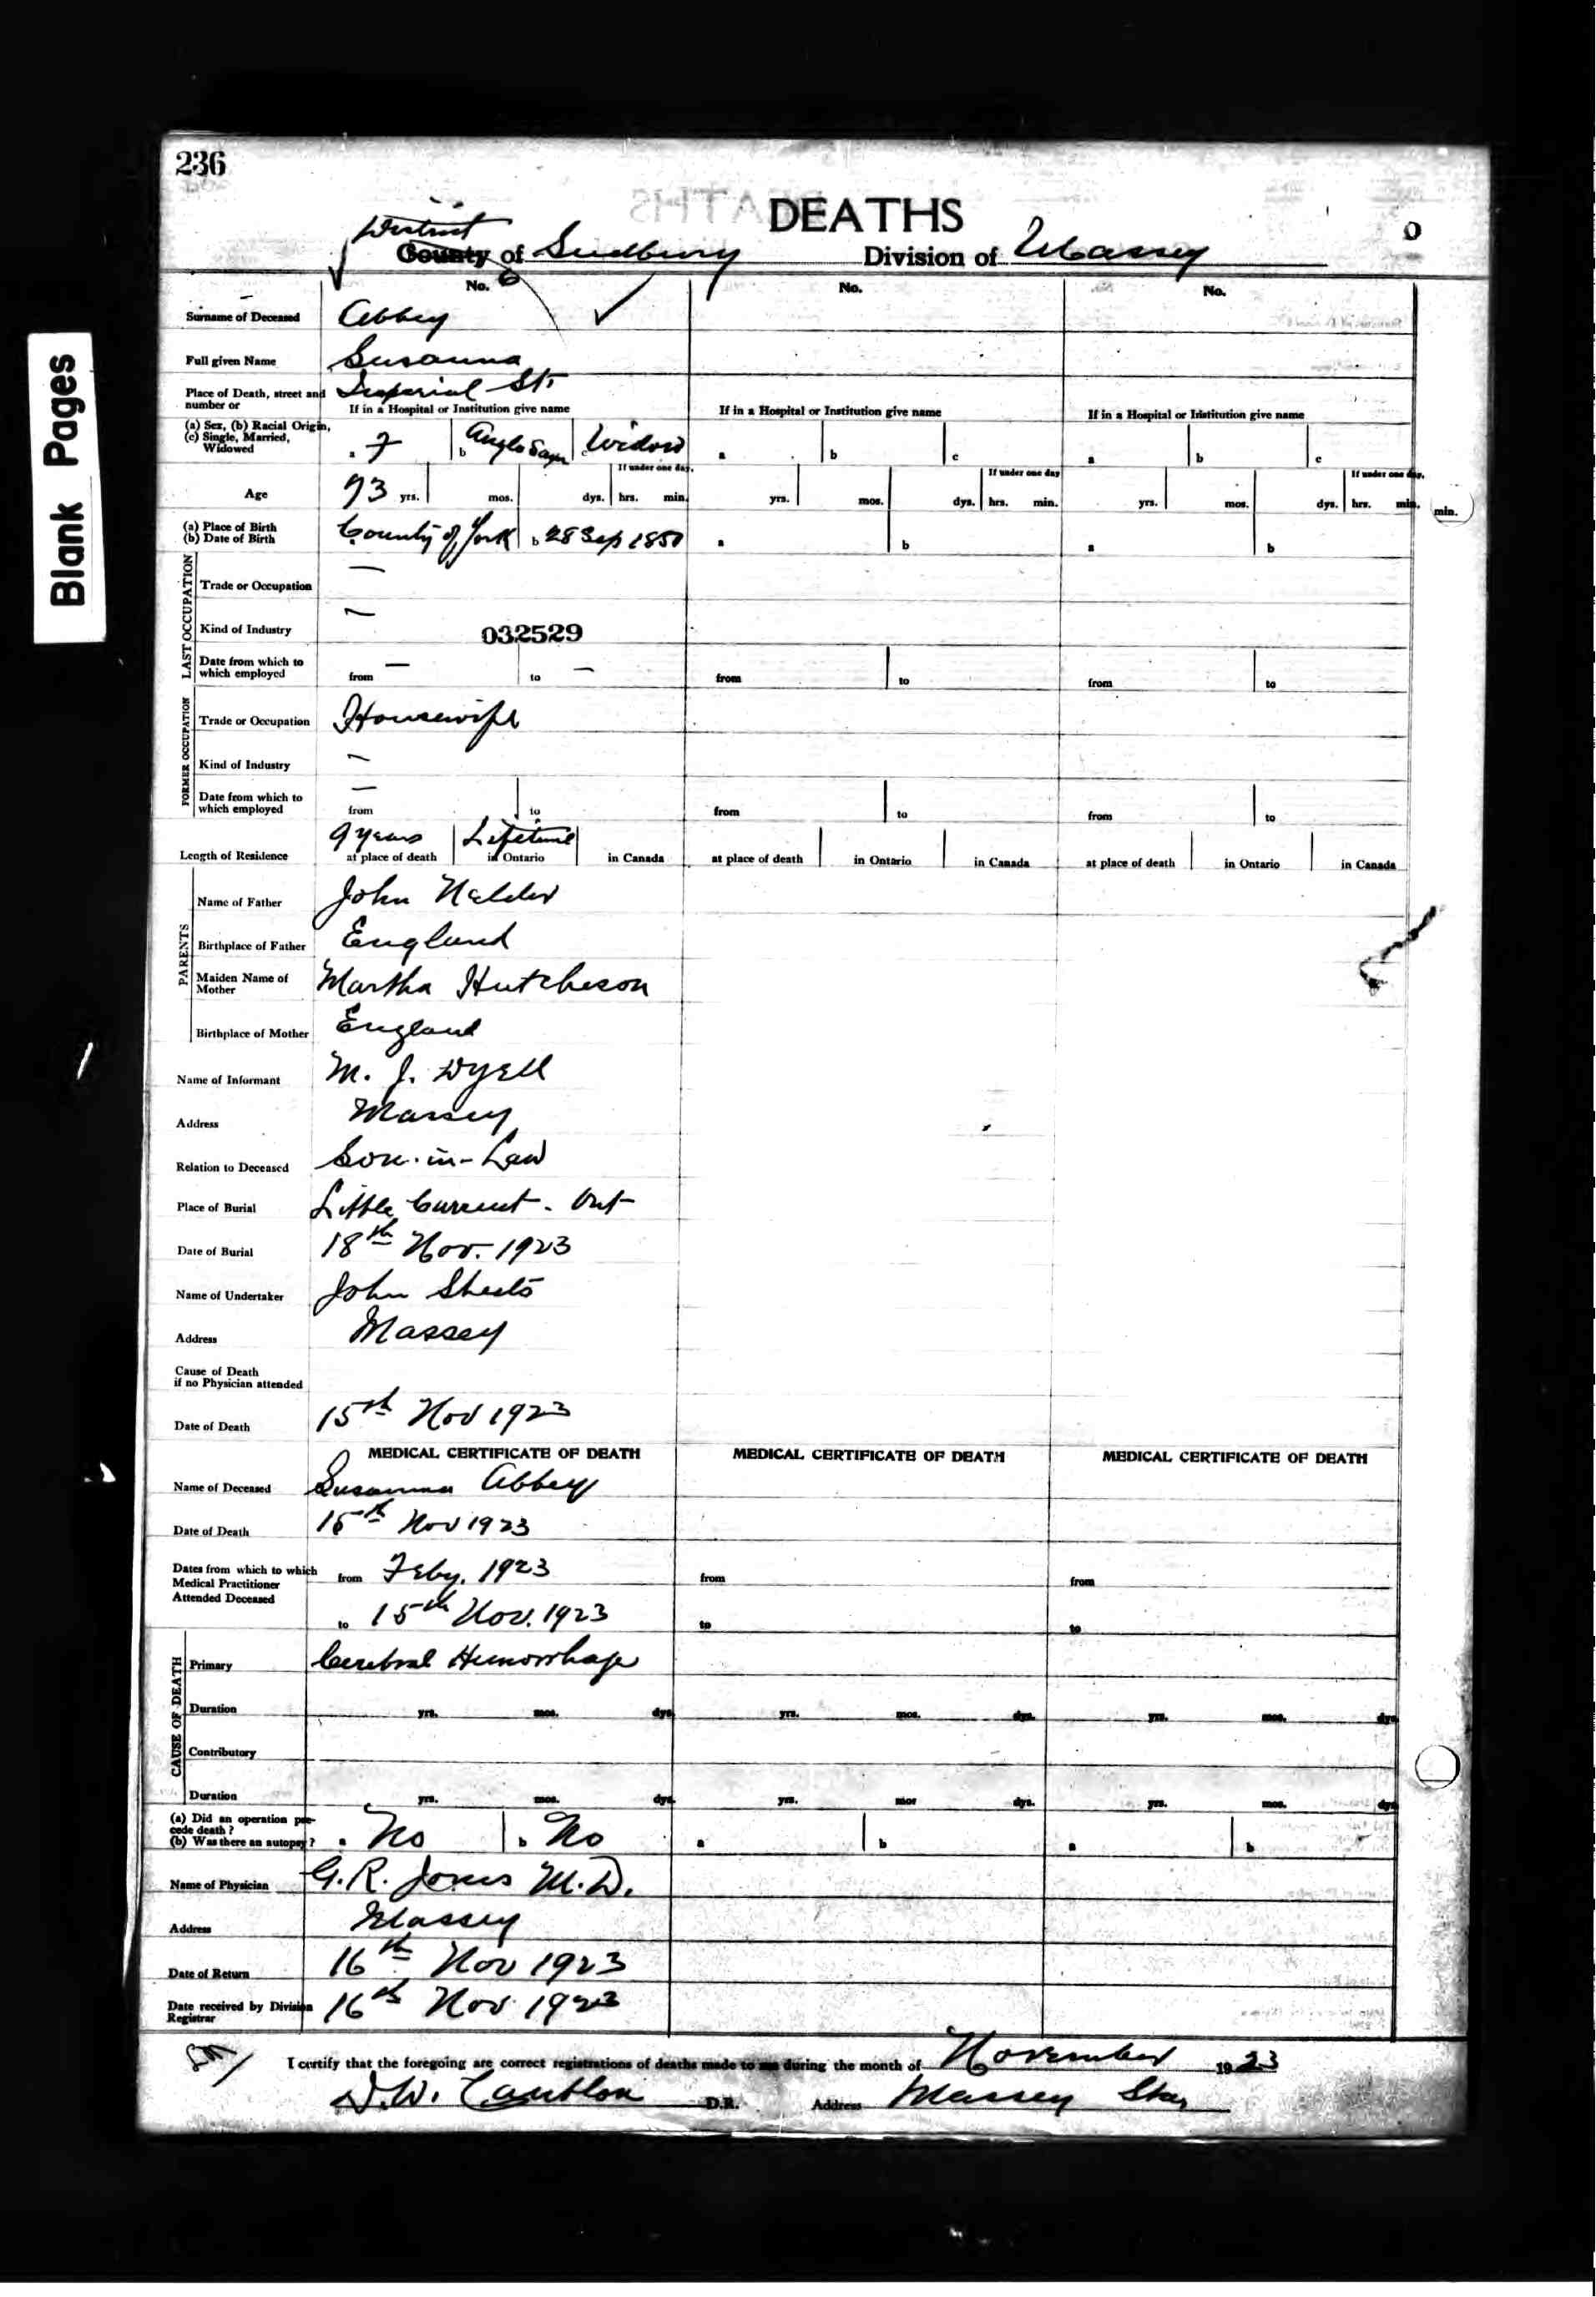 236
DEATHS
District
County of Sudbury Division of Massey
No. 6 No. No.
Surname of Deceased Abbey
Full given Name Susanna
Place of Death, street and number or Imperial St.
If in a Hospital or Institution give name If in a Hospital or Institution give name If in a Hospital or Institution give name
(a) Sex, (b) Racial Origin, (c) Single, Married, Widowed a F b Anglo Saxn c Widow a b c a b c
If under one day. If under one day If under one day.
Age 73 yrs. mos. dys. hrs. min. yrs. mos. dys. hrs. min. yrs. mos. dys. hrs. min. min.
(a) Place of Birth
(b) Date of Birth County of York b 28 Sep 1850 a b a b
LAST OCCUPATION
Trade or Occupation —
Kind of Industry —
032529
Date from which to which employed from — to — from to from to
FORMER OCCUPATION
Trade or Occupation Housewife
Kind of Industry —
Date from which to which employed — from to from to from to
Length of Residence 9 years at place of death Lifetime in Ontario in Canada at place of death in Ontario in Canada at place of death in Ontario in Canada
PARENTS
Name of Father John
Birthplace of Father England
Maiden Name of Mother Martha Hutcheson
Birthplace of Mother England
Name of Informant M. J. Dyell
Address Massey
Relation to Deceased Son-in-Law
Place of Burial Little Current - Ont
Date of Burial 18th Nov. 1923
Name of Undertaker John
Address Massey
Cause of Death if no Physician attended
Date of Death 15th Nov 1923
MEDICAL CERTIFICATE OF DEATH MEDICAL CERTIFICATE OF DEATH MEDICAL CERTIFICATE OF DEATH
Name of Deceased Susanna Abbey
Date of Death 15th Nov 1923
Dates from which to which Medical Practitioner Attended Deceased from Feby. 1923 from from
to 15th Nov. 1923 to to
CAUSE OF DEATH
Primary Cerebral Hemorrhage
Duration yrs. mos. dys. yrs. mos. dys. yrs. mos. dys.
Contributory
Duration yrs. mos. dys. yrs. mos dys. yrs. mos. dys.
(a) Did an operation precede death?
(b) Was there an autopsy? a No b No a b a b
Name of Physician G. R. Jones M.D.
Address Massey
Date of Return 16th Nov 1923
Date received by Division Registrar 16th Nov 1923
I certify that the foregoing are correct registrations of deaths made to me during the month of November 1923
D.W. D.R. Address Massey
Blank Pages